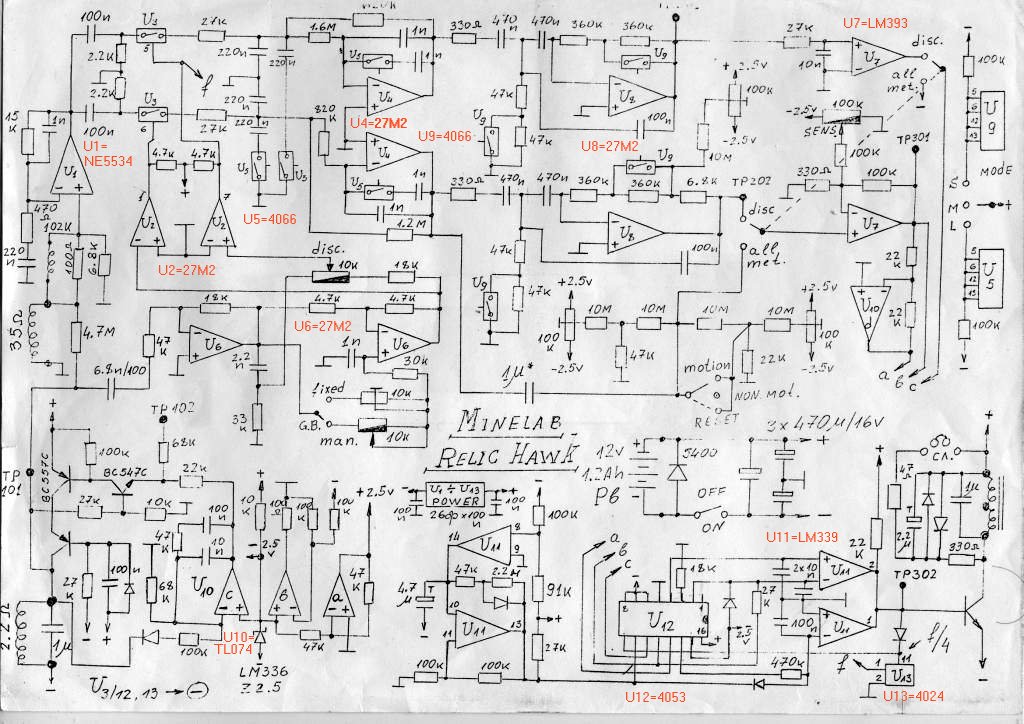 100n
U3
5
27K
220n
220n
1.6M
1n
U5
1n
330Ω
470n
470n
360K
360K
U9
27K
10n
U7=LM393
U7
disc.
all met.
100K
2.2K
2.2K
U3
6
27K
f
220n
220n
820K
U4
U4=27M2
U4
47K
U9
47K
U8
U9=4066
U8=27M2
100n
+2.5v
100K
-2.5v
10M
-2.5v
100K
SENS.
100K
TP301
5
6
12
13
U9
MODE
15K
1n
100n
U1=
NE5534
U1
4.7K
4.7K
U5
U5
U5=4066
U5
1n
1n
1.2M
330Ω
470n
470n
360K
360K
6.8K
U9
TP202
disc
330Ω
100K
S
M
L
470Ω
220n
102K
100Ω
6.8K
1
7
U2
U2
U2=27M2
disc.
10K
18K
47K
U9
47K
U8
100n
all met.
U7
22K
22K
U10 d
5
6
12
13
U5
100K
35Ω
4.7M
18K
4.7K
4.7K
U6=27M2
47K
U6
2.2n
1n
U6
30K
+2.5v
10M
10M
10M
10M
+2.5v
100K
-2.5v
47K
22K
100K
-2.5v
a
b
c
6.8n/100
33K
fixed
10K
G.B.
man.
10K
1μ*
motion
NON.mot.
RESET
MINELAB
RELIC HAWK
3x470μ/16v
12v
1.2Ah
Pb
5400
OFF
ON
TP102
TP
101
BC557C
100K
BC547C
68K
22K
27K
10K
100n
10n
47K
68K
27K
100n
2.2Ω
1μ
100K
10K
-2.5v
+2.5v
47K
47K
U10
c
b
a
U10=
TL074
LM336
Z2.5
U3/12,13 → ⊖
U1÷U13
POWER
26φ x100n
100n
100n
14
8
9
U11
4.7μ
47K
2.2M
10
11
13
U11
100K
100K
100K
91K
27K
a
b
c
18K
U12
16
27K
2.5v
2x10n
100n
470K
U12=4053
U11=LM339
U11
2
U11
1
22K
TP302
f
f/4
1
2
11
U13
U13=4024
2.2μ
1μ
330Ω